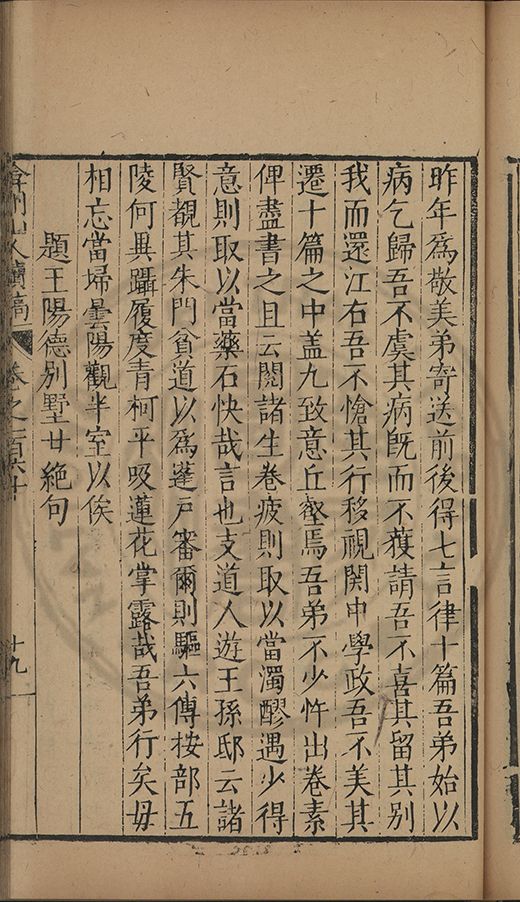 昨年為敬美弟寄送前後得七言律十篇吾弟始以
病乞歸吾不虞其病旣而不獲請吾不喜其留其別
我而還江右吾不愴其行移視関中學政吾不美其
遷十篇之中盖九致意丘壑焉吾弟不少忤出卷素
俾盡書之且云閱諸生卷疲則取以當濁醪遇少得
意則取以當藥石快哉言也支道人遊王孫邸云諸
賢覩其朱門貧道以為蓬戶審爾則驅六傳按部五
陵何異躡履度青柯平吸蓮花掌露哉吾弟行矣毋
相忘當埽曇陽觀半室以俟
題王陽德別墅廿絶句
弇州山人續稿 卷之一百六十 十九